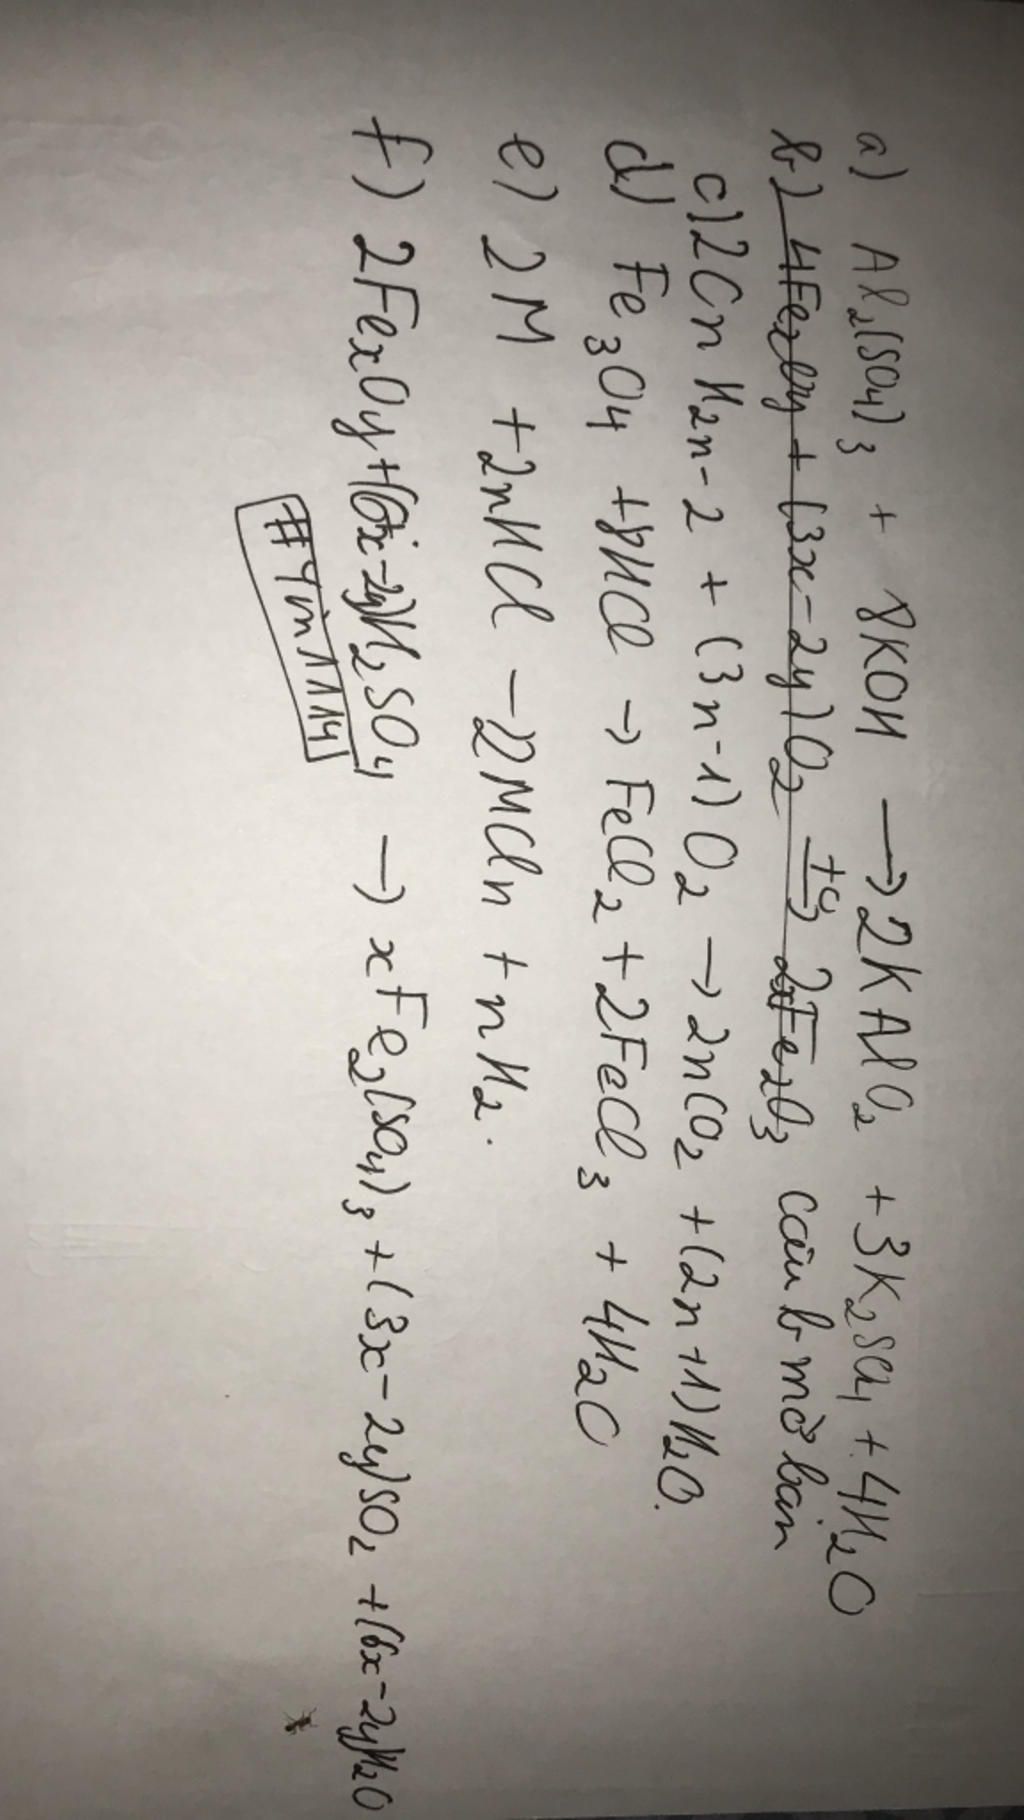 a) Al2(SO4)3 + 8KOH → 2KAlO2 + 3K2SO4 + 4H2O
b) 4FexOy + (3x-2y)O2 →(t°) 2xFe2O3 câu b mờ bạn
c) 2CnH2n-2 + (3n-1)O2 → 2nCO2 + (2n+1)H2O.
d) Fe3O4 + 8HCl → FeCl2 + 2FeCl3 + 4H2O
e) 2M + 2nHCl → 2MCln + nH2.
f) 2FexOy + (6x-2y)H2SO4 → xFe2(SO4)3 + (3x-2y)SO2 + (6x-2y)H2O